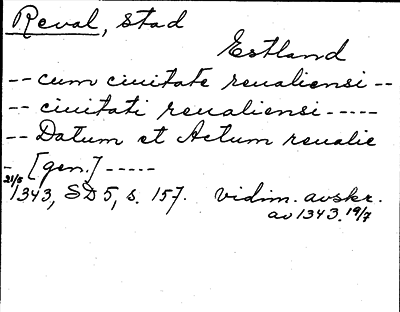 Reval, stad
Estland
-- cum ciuitate reualiensi --
-- ciuitati reualiensi -----
-- Datum et Actum reualie
- [gen.] -----
21/5 1343, SD 5, s. 157. vidim. avskr.
av 1343.19/7